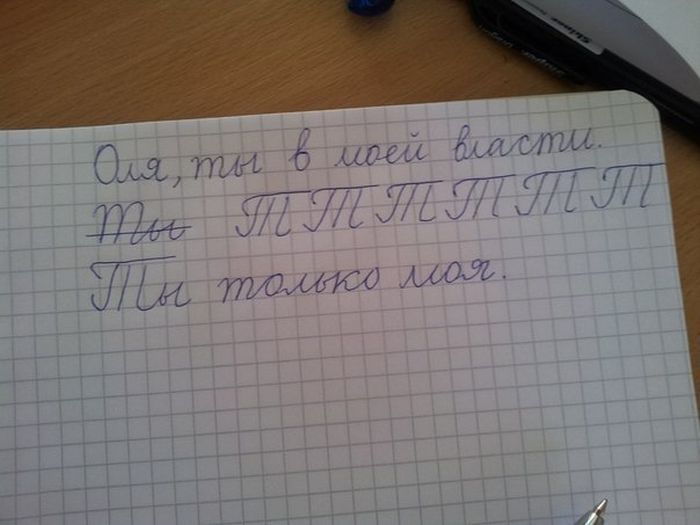 Оля, ты в моей власти.
Ты Т Т Т Т Т Т
Ты только моя.